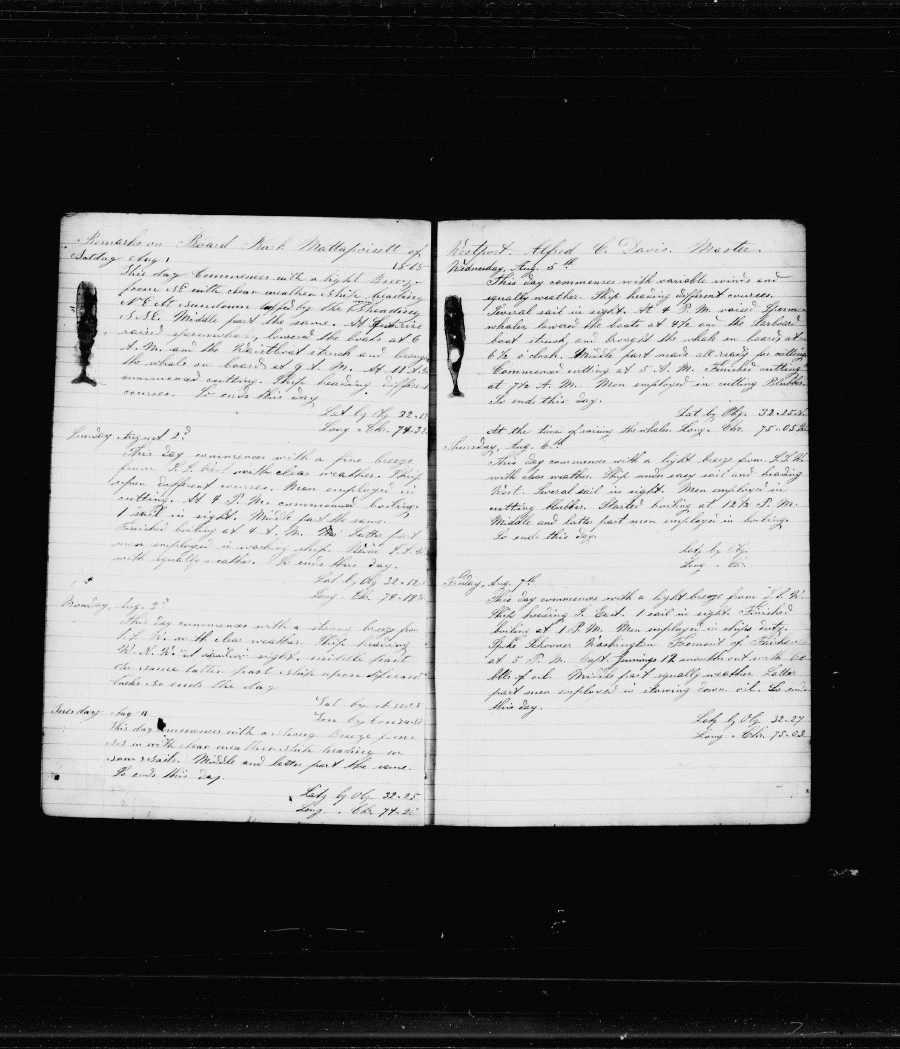 Remarks on Board Bark Mattapoisett of
Satday Aug 1
This day Commences with a light Breeze
from SE with clear weather Ship heading
N E At sundown by the heading
S.S.E. Middle part the same. At Sunrise
raised spermwhales, lowered the boats at 6
A. M. and the boat struck and brought
the whale on board at 9 A. M. At 11 A.M.
commenced cutting. Ship heading different
courses. So ends this day
Lat by Ob 32-
Long " Chr. 74-
Sunday August 2d
This day commences with a fine breeze
from with clear weather. Ship
upon different courses. Men employed in
cutting. At 4 P. M. commenced boiling.
1 sail in sight. Middle part the same.
Finished boiling at 4 A. M. Latter part
men employed in washing ship. Wind
with squally weather. So ends this day.
Lat by Ob 32-12
Long. Chr. 74-
Monday Aug. 3d
This day commences with a strong breeze from
with clear weather. Ship heading
W. N. W. sight, middle part
the same latter part Ship upon
tacks so ends the day
Lat by
Lon by
Tuesday Aug 4
This day commences with a strong breeze from
with clear weather Ship heading
saw 3 Sails. Middle and latter part the same.
So ends this day.
Lat by Ob 32-25
Long. Chr. 74-
Westport. Alfred C. Davis. Master.
Wednesday, Aug. 5th
This day commences with variable winds and
squally weather. Ship heading different courses.
Several sail in sight. At 4 P. M. raised Sperm
whales, lowered the boats at 4½ and the Larboard
boat struck, and brought the whale on board at
6½ o'clock. Middle part made all ready for cutting
Commenced cutting at 5 A. M. Finished cutting
at 7½ A. M. Men employed in cutting Blubber.
So ends this day.
Lat by Ob. 32-25
At the time of raising the whales. Long. Chr. 75-05
Thursday, Aug. 6th
This day commences with a light breeze from S.S.W.
with clear weather. Ship under easy sail and heading
West. Several sail in sight. Men employed in
cutting blubber. Started boiling at 12½ P. M.
Middle and latter part men employed in boiling.
So ends this day.
Lat by Ob.
Long " Chr.
Friday, Aug. 7th
This day commences with a light breeze from S.S.W.
Ship heading S. East. 1 sail in sight. Finished
boiling at 1 P. M. Men employed in ships duty.
Spoke Schooner Washington Freeman of
at 5 P. M. Capt. Jennings 12 months out with 60
bbls of oil. Middle part squally weather. Latter
part men employed in stowing down oil. So ends
this day.
Lat by Ob 32-27
Long " Chr. 75-03